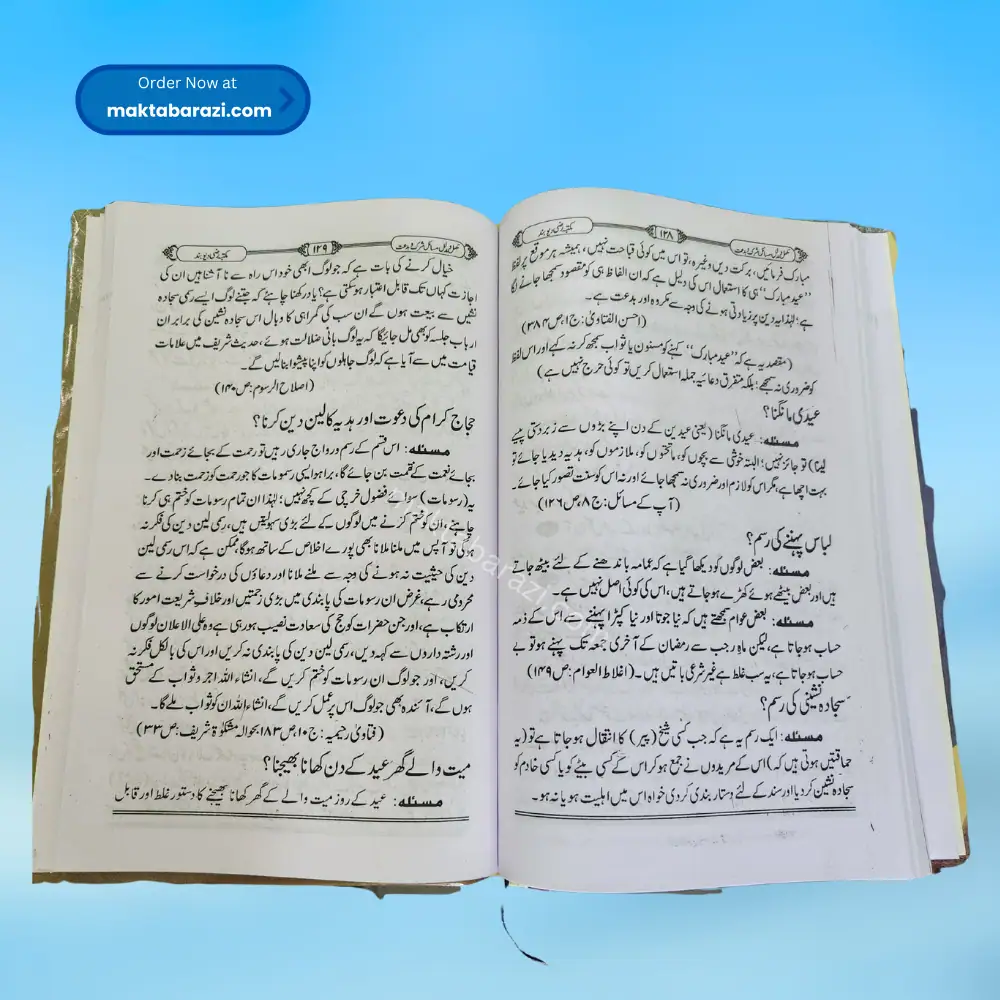 Order Now at
maktabarazi.com
مکتبہ رضی دیوبند
۱۲۸
مکمل ومدلل مسائل شرک وبدعت
مبارک فرمائیں، برکت دیں وغیرہ، تو اس میں کوئی قباحت نہیں، ہمیشہ ہر موقع پر لفظ
”عید مبارک“ ہی کا استعمال اس کی دلیل ہے کہ ان الفاظ ہی کو مقصود سمجھا جانے لگا
ہے؛ لہٰذا یہ دین پر زیادتی ہونے کی وجہ سے مکروہ اور بدعت ہے۔
(احسن الفتاویٰ: ج۱، ص۳۸۴)
(مقصد یہ ہے کہ ”عید مبارک“ کہنے کو مسنون یا ثواب سمجھ کر نہ کہے اور اس لفظ
کو ضروری نہ سمجھے؛ بلکہ متفرق دعائیہ جملہ استعمال کریں تو کوئی حرج نہیں ہے)
عیدی مانگنا؟
مسئلہ: عیدی مانگنا (یعنی عیدین کے دن اپنے بڑوں سے زبردستی پیسے
لینا) تو جائز نہیں؛ البتہ خوشی سے بچوں کو، ماتحتوں کو، ملازموں کو، ہدیہ دیدیا جائے تو
بہت اچھا ہے، مگر اس کو لازم اور ضروری نہ سمجھا جائے اور نہ اس کو سنت تصور کیا جائے۔
(آپ کے مسائل: ج۸، ص۱۲۶)
لباس پہننے کی رسم؟
مسئلہ: بعض لوگوں کو دیکھا گیا ہے کہ عمامہ باندھنے کے لئے بیٹھ جاتے
ہیں اور بعض بیٹھے ہوئے کھڑے ہو جاتے ہیں، اس کی کوئی اصل نہیں ہے۔
مسئلہ: بعض عوام سمجھتے ہیں کہ نیا جوتا اور نیا کپڑا پہننے سے اس کے ذمہ
حساب ہو جاتا ہے، لیکن ماہ رجب سے رمضان کے آخری جمعہ تک پہنے ہو تو بے
حساب ہو جاتا ہے، یہ سب غلط ہے غیر شرعی باتیں ہیں۔ (اغلاط العوام: ص۱۴۹)
سجادہ نشینی کی رسم؟
مسئلہ: ایک رسم یہ ہے کہ جب کسی شیخ (پیر) کا انتقال ہو جاتا ہے تو (یہ
حماقتیں ہوتی ہیں کہ) اس کے مریدوں نے جمع ہو کر اس کے کسی بیٹے کو یا کسی خادم کو
سجادہ نشین کر دیا اور سند کے لئے دستار بندی کر دی خواہ اس میں اہلیت ہو یا نہ ہو۔
مکتبہ رضی دیوبند
۱۲۹
مکمل ومدلل مسائل شرک وبدعت
خیال کرنے کی بات ہے کہ جو لوگ ابھی خود اس راہ سے نا آشنا ہیں ان کی
اجازت کہاں تک قابل اعتبار ہو سکتی ہے؟ یاد رکھنا چاہئے کہ جتنے لوگ ایسے رسمی سجادہ
نشیں سے بیعت ہوں گے ان سب کی گمراہی کا وبال اس سجادہ نشین کی برابر ان
ارباب جلسہ کو بھی مل جائیگا کہ یہ لوگ بانی ضلالت ہوئے، حدیث شریف میں علامات
قیامت میں سے آیا ہے کہ لوگ جاہلوں کو اپنا پیشوا بنالیں گے۔
(اصلاح الرسوم: ص۱۴۰)
حجاج کرام کی دعوت اور ہدیہ کا لین دین کرنا؟
مسئلہ: اس قسم کے رسم ورواج جاری رہیں تو رحمت کے بجائے زحمت اور
بجائے نعمت کے نقمت بن جائے گا، برا ہو ایسی رسومات کا جو رحمت کو زحمت بنادے۔
یہ (رسومات) سوائے فضول خرچی کے کچھ نہیں؛ لہٰذا ان تمام رسومات کو ختم ہی کرنا
چاہئے، ان کو ختم کرنے میں لوگوں کے لئے بڑی سہولتیں ہیں، رسمی لین دین کی فکر نہ
ہوگی تو آپس میں ملنا ملانا بھی پورے اخلاص کے ساتھ ہوگا، ممکن ہے کہ اس رسمی لین
دین کی حیثیت نہ ہونے کی وجہ سے ملنے ملانا اور دعاؤں کی درخواست کرنے سے
محرومی رہے، غرض ان رسومات کی پابندی میں بڑی زحمتیں اور خلاف شریعت امور کا
ارتکاب ہے، اور جن حضرات کو حج کی سعادت نصیب ہو رہی ہے وہ علی الاعلان لوگوں
اور رشتہ داروں سے کہہ دیں، رسمی لین دین کی پابندی نہ کریں اور اس کی بالکل فکر نہ
کریں، اور جو لوگ ان رسومات کو ختم کریں گے، انشاء اللہ اجر وثواب کے مستحق
ہوں گے، آئندہ بھی جو لوگ اس پر عمل کریں گے، انشاء اللہ ان کو ثواب ملے گا۔
(فتاویٰ رحیمیہ: ج۱۰، ص۱۸۳ بحوالہ مشکوٰۃ شریف: ص۳۳)
میت والے گھر عید کے دن کھانا بھیجنا؟
مسئلہ: عید کے روز میت والے کے گھر کھانا بھیجنے کا دستور غلط اور قابل
maktabarazi.com